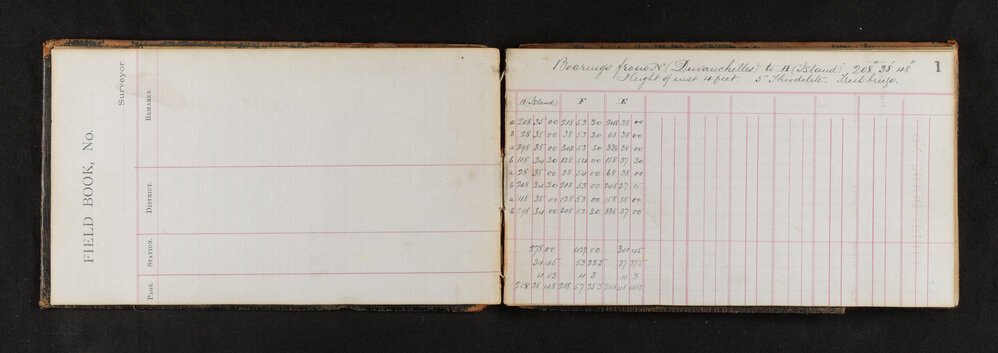 FIELD BOOK, No.
Surveyor.
REMARKS.
DISTRICT.
STATION.
PAGE.
1
Bearings from N (Duvauchelles) to A (Island) 208° 38' 48"
Height of inst 4 feet. 5" Theodolite. Fresh breeze.
A (Island) F E
a 208 35 00 218 53 30 248 38 00
b 28 35 00 38 53 30 68 38 00
a 298 35 00 308 53 30 338 38 00
b 118 34 30 128 54 00 158 37 30
a 28 35 00 38 54 00 68 38 00
b 208 34 30 218 53 00 248 37 15
a 118 35 00 128 53 00 158 38 00
b 298 34 00 308 52 30 338 37 00
278 00 427 00 301 45
34 45 53 22 5 37 37 5
4 03 4 3 4 3
208 38 48 218 57 25 5